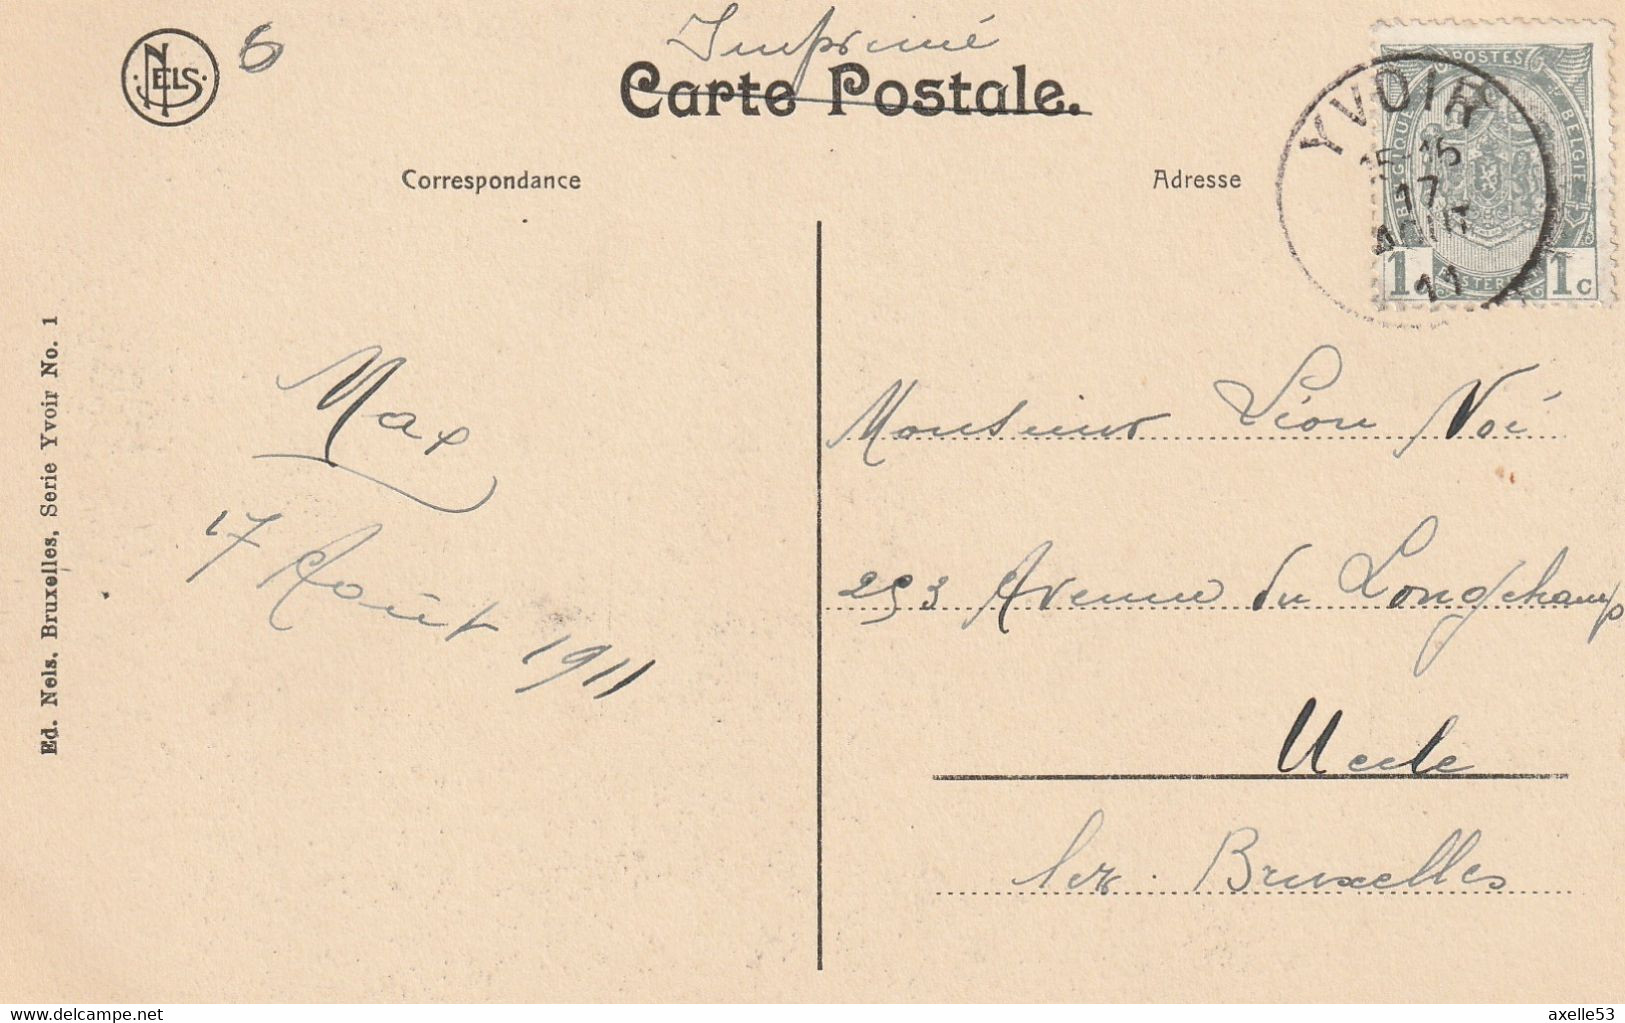 NELS
6
Imprimé
Carte Postale.
Correspondance
Adresse
POSTES
BELGIQUE
BELGIE
1 1c
YVOIR
15-16
17
AOUT
11
Max
17 Août 1911
Monsieur Léon Noé
293 Avenue du Longchamp
Uccle
lez Bruxelles
Ed. Nels. Bruxelles, Serie Yvoir No. 1
delcampe.net
axelle53